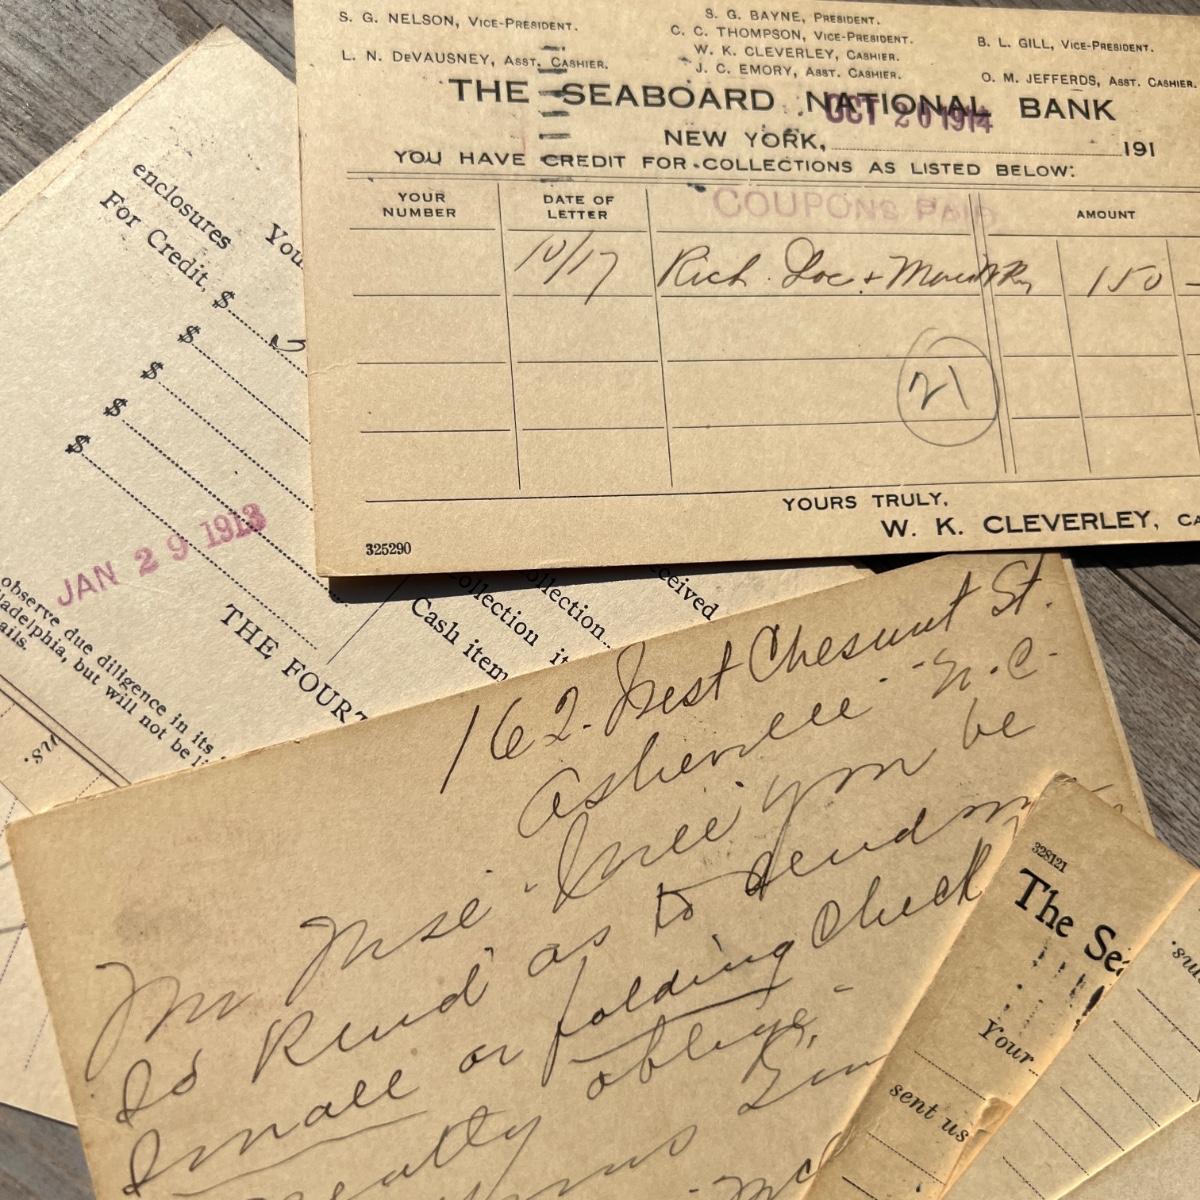 S. G. NELSON, VICE-PRESIDENT.
S. G. BAYNE, PRESIDENT.
C. C. THOMPSON, VICE-PRESIDENT.
B. L. GILL, VICE-PRESIDENT.
L. N. DEVAUSNEY, ASST. CASHIER.
W. K. CLEVERLEY, CASHIER.
J. C. EMORY, ASST. CASHIER.
O. M. JEFFERDS, ASST. CASHIER.
THE SEABOARD NATIONAL BANK
OCT 20 1914
NEW YORK, 191
YOU HAVE CREDIT FOR COLLECTIONS AS LISTED BELOW:
YOUR NUMBER
DATE OF LETTER
COUPONS PAID
AMOUNT
10/17 Rich. Loc + 150 -
21
YOURS TRULY,
W. K. CLEVERLEY, CA
325290
enclosures You
For Credit, $
$
$
$
$
JAN 29 1913
observe due diligence in its
ladelphia, but will not be li
ails.
THE FOURT
ollection
Collection it
Cash item
ceived
162 West Chesnut St.
Asheville N.C.
Mr Mse Will you be
So kind as to send m
Small or folding Check
oblige
328121
The Sea
Your
sent us